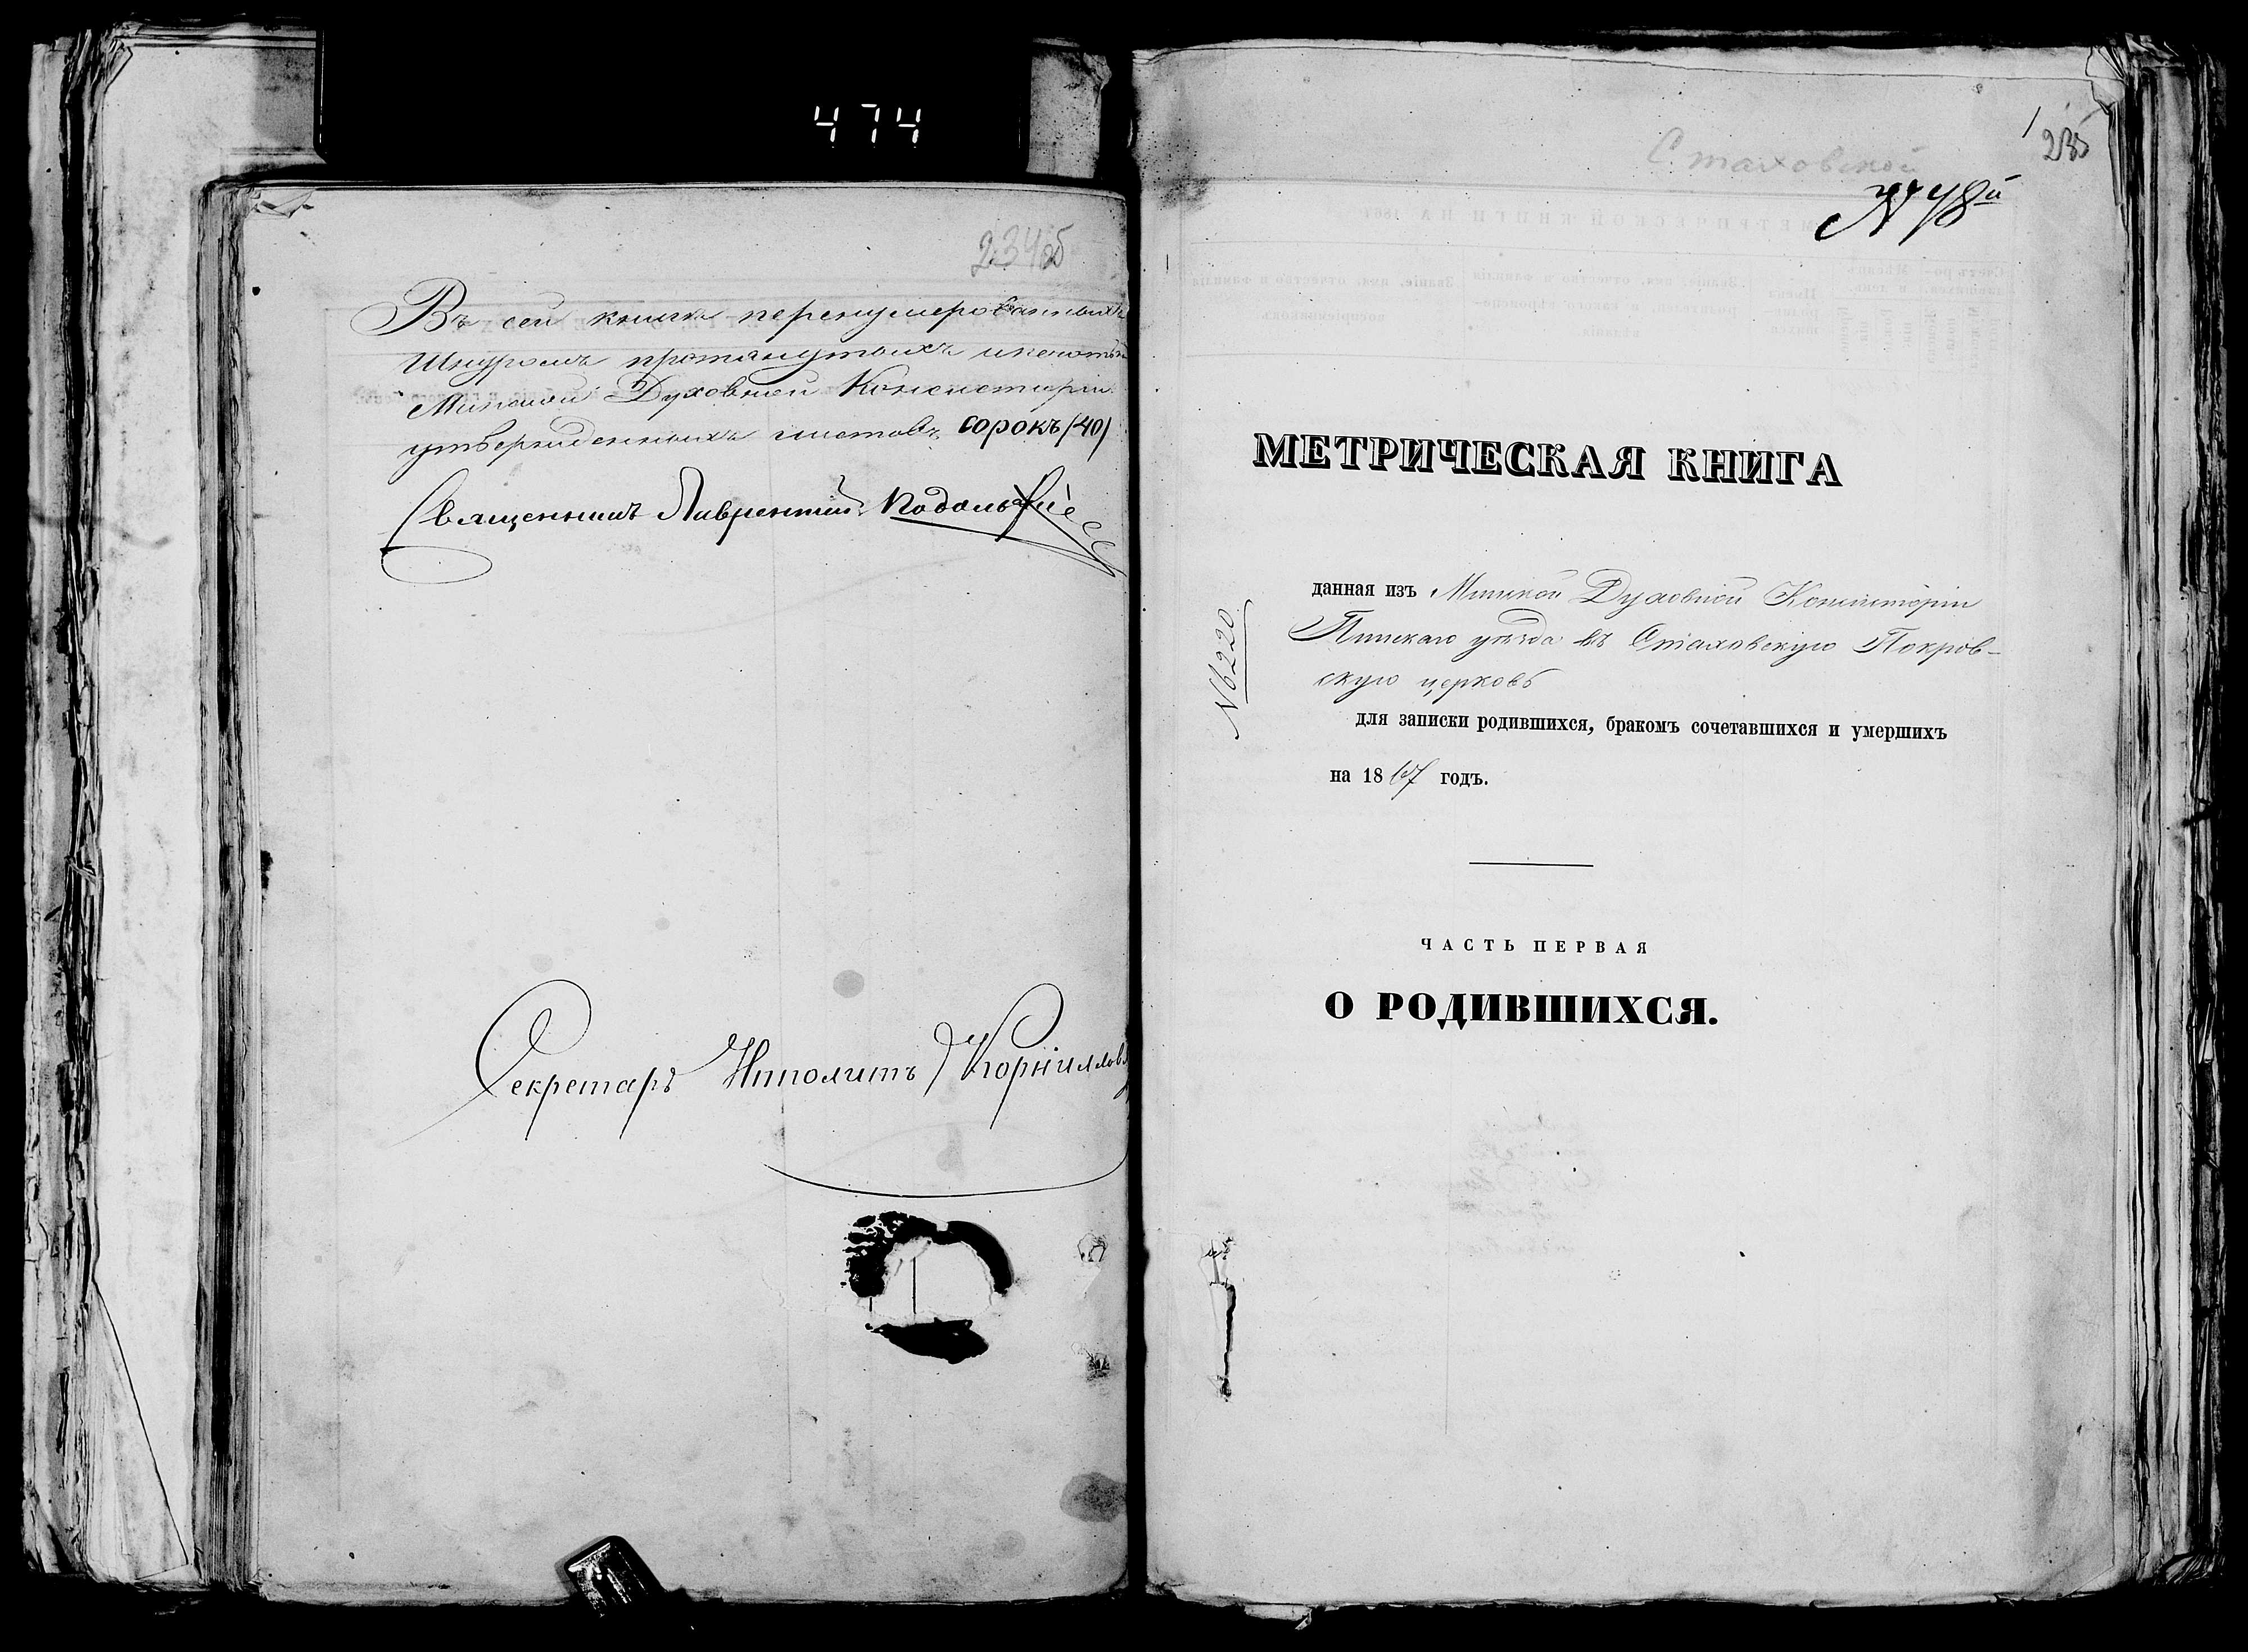 474
234 об
Въ сей книгѣ перенумерованныхъ
Шнуромъ протянутыхъ и печатью
Минской Духовной Консисторіи
утвержденныхъ листовъ сорокъ (40)
Священникъ Лаврентій
Секретарь Ипполитъ Корнилло
1
235
Стаховской
№ 48й
МЕТРИЧЕСКАЯ КНИГА
данная изъ Минской Духовной Консисторіи
Пинскаго уѣзда въ Стаховскую Покров-
скую церковь
№ 6220
для записки родившихся, бракомъ сочетавшихся и умершихъ
на 1867 годъ.
ЧАСТЬ ПЕРВАЯ
О РОДИВШИХСЯ.